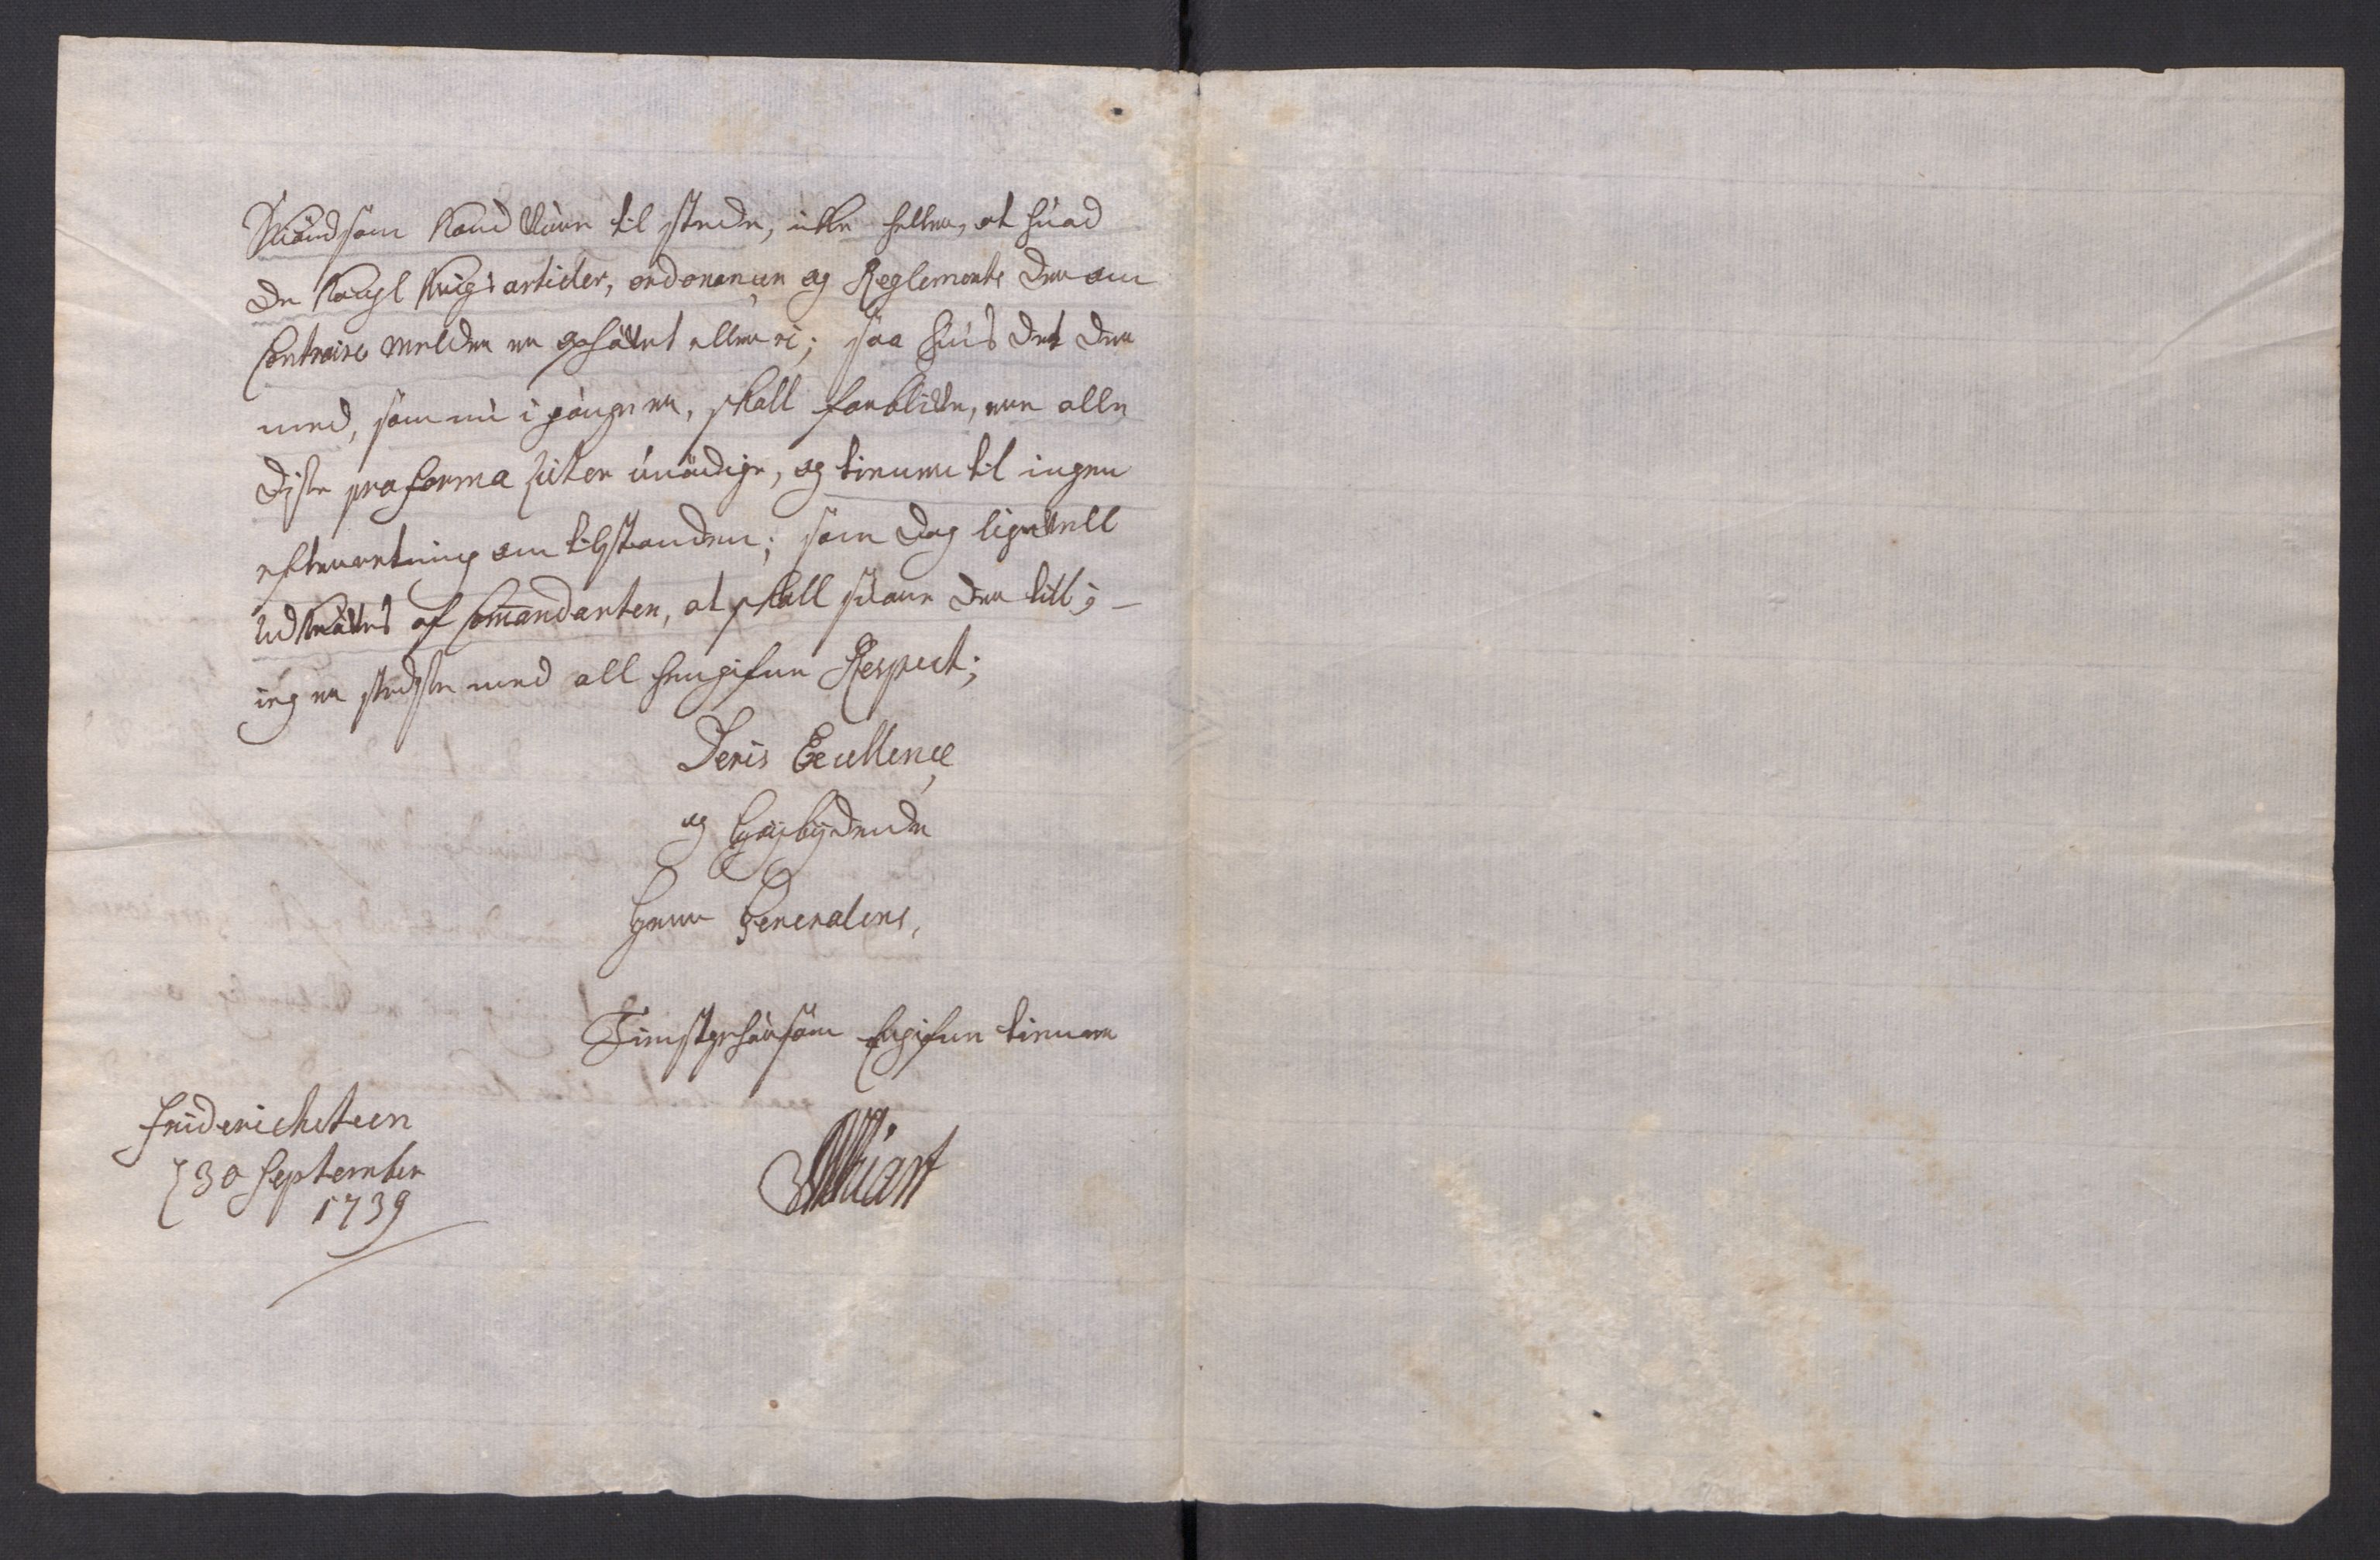 som kand være til stæde, icke heller, at huad
de Kongl Krigs articler, ordonancer og Reglements der om
Contraire melder er ophævet eller ei; saa huis det der
med, som nu i gange er, skall forblive, ere alle
disse pro forma lister unödige, og tiener til ingen
efterretning om tilstanden; som dog ligevell
udkræves af Comandanten, at skall svare der till; –
ieg er stedse med all hengifven Respect;
Deris Excellence
og Höybydende
Herr Generalens,
Tienstgehörsom hengifven tienere
Friderichsteen
d 30 September
1739